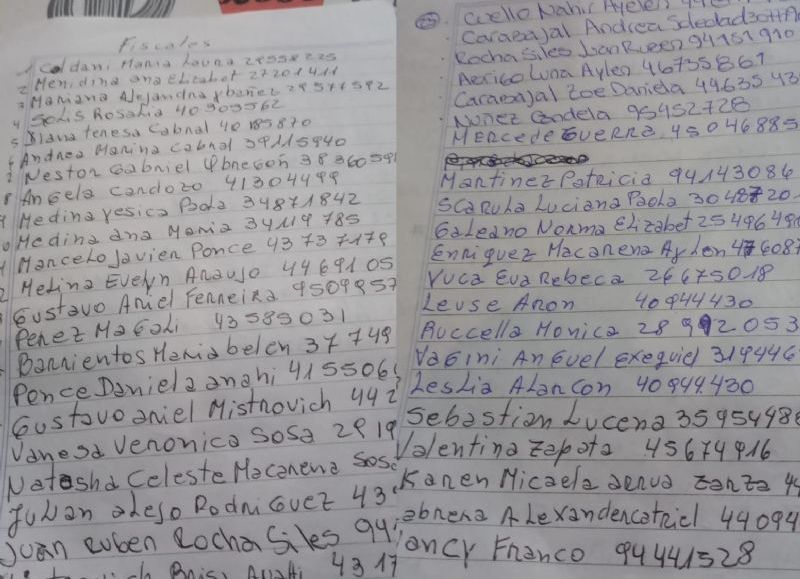 Fiscales
1 Coldani Maria Laura 28558225
2 Menidina ana Elizabet 27201411
3 Mariana Alejandra ybañez 29577592
4 Solis Rosalia 40909562
5 Diana teresa Cabral 40185870
6 Andrea Marina Cabral 39115940
7 Nestor Gabriel Obregon 38360591
8 Angela cardozo 41304499
9 Medina yesica Paola 34871842
Medina ana Maria 34119785
Marcelo Javier Ponce 43737179
Melina Evelyn Araujo 4469105
Gustavo Ariel Ferreira 9509957
Perez Magali 43585031
Barrientos Maria belen 37749
Ponce Daniela anahi 415506
Gustavo ariel Mistrovich 442
Vanesa Veronica Sosa 2919
Natasha Celeste Macarena Sosa
Julian alejo Rodriguez 43
Juan Ruben Rocha Siles 94
4317
25. Cuello Nahir Ayelen
Carabajal Andrea Soledad
Rocha Siles Juan Ruben 94151910
Aerigo Luna Aylen 46735861
Carabajal Zoe Daniela 4463543
Nuñez Candela 95452728
Mercede Guerra 45046885
Martinez Patricia 94143086
Scarula Luciana Paola 3048720
Galeano Norma Elizabet 2549649
Enriquez Macarena Aylen 476087
Yuca Eva Rebeca 26675018
Leuse Aron 40944430
Ruccella Monica 28992053
Vagini Anguel Exequiel 319446
Leslia Alarcon 40944.430
Sebastian Lucena 35954986
Valentina Zapata 45674916
Karen Micaela 44
abrera Alexandercatriel 44094
ancy Franco 94441528